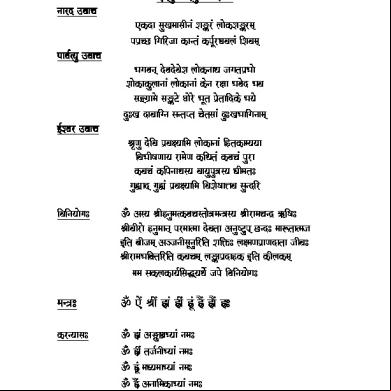 नारद उवाच
एकदा सुखमासीनं शङ्करं लोकशङ्करम्
पप्रच्छ गिरिजा कान्तं कर्पूरधवलं शिवम्
पार्वत्यु उवाच
भगवन् देवदेवेश लोकनाथ जगत्प्रभो
शोकाकुलानां लोकानां केन रक्षा भवेद् भव
सङ्ग्रामे सङ्कटे घोरे भूत प्रेतादिके भये
दुःख दावाग्नि सन्तप्त चेतसां दुःखभागिनाम्
ईश्वर उवाच
श्रृणु देवि प्रवक्ष्यामि लोकानां हितकाम्यया
विभीषणाय रामेण कथितं कवचं पुरा
कवचं कपिनाथस्य वायुपुत्रस्य धीमतः
गुह्याद् गुह्यं प्रवक्ष्यामि विशेषातव सुन्दरि
विनियोगः ॐ अस्य श्रीहनुमत्कवचस्तोत्रमन्त्रस्य श्रीरामचन्द्र ऋषिः
श्रीवीरो हनुमान् परमात्मा देवता अनुष्टुप् छन्दः मारुतात्मज
इति बीजम् अञ्जनीसूनुरिति शक्तिः लक्ष्मणप्राणदाता जीवः
श्रीरामभक्तिरिति कवचम् लङ्काप्रदाहक इति कीलकम्
मम सकलकार्यसिद्ध्यर्थे जपे विनियोगः
मन्त्रः ॐ ऐं श्रीं ह्रां ह्रीं ह्रूं ह्रैं ह्रौं ह्रः
करन्यासः ॐ ह्रां अङ्गुष्ठाभ्यां नमः
ॐ ह्रीं तर्जनीभ्यां नमः
ॐ ह्रूं मध्यमाभ्यां नमः
ॐ ह्रैं अनामिकाभ्यां नमः